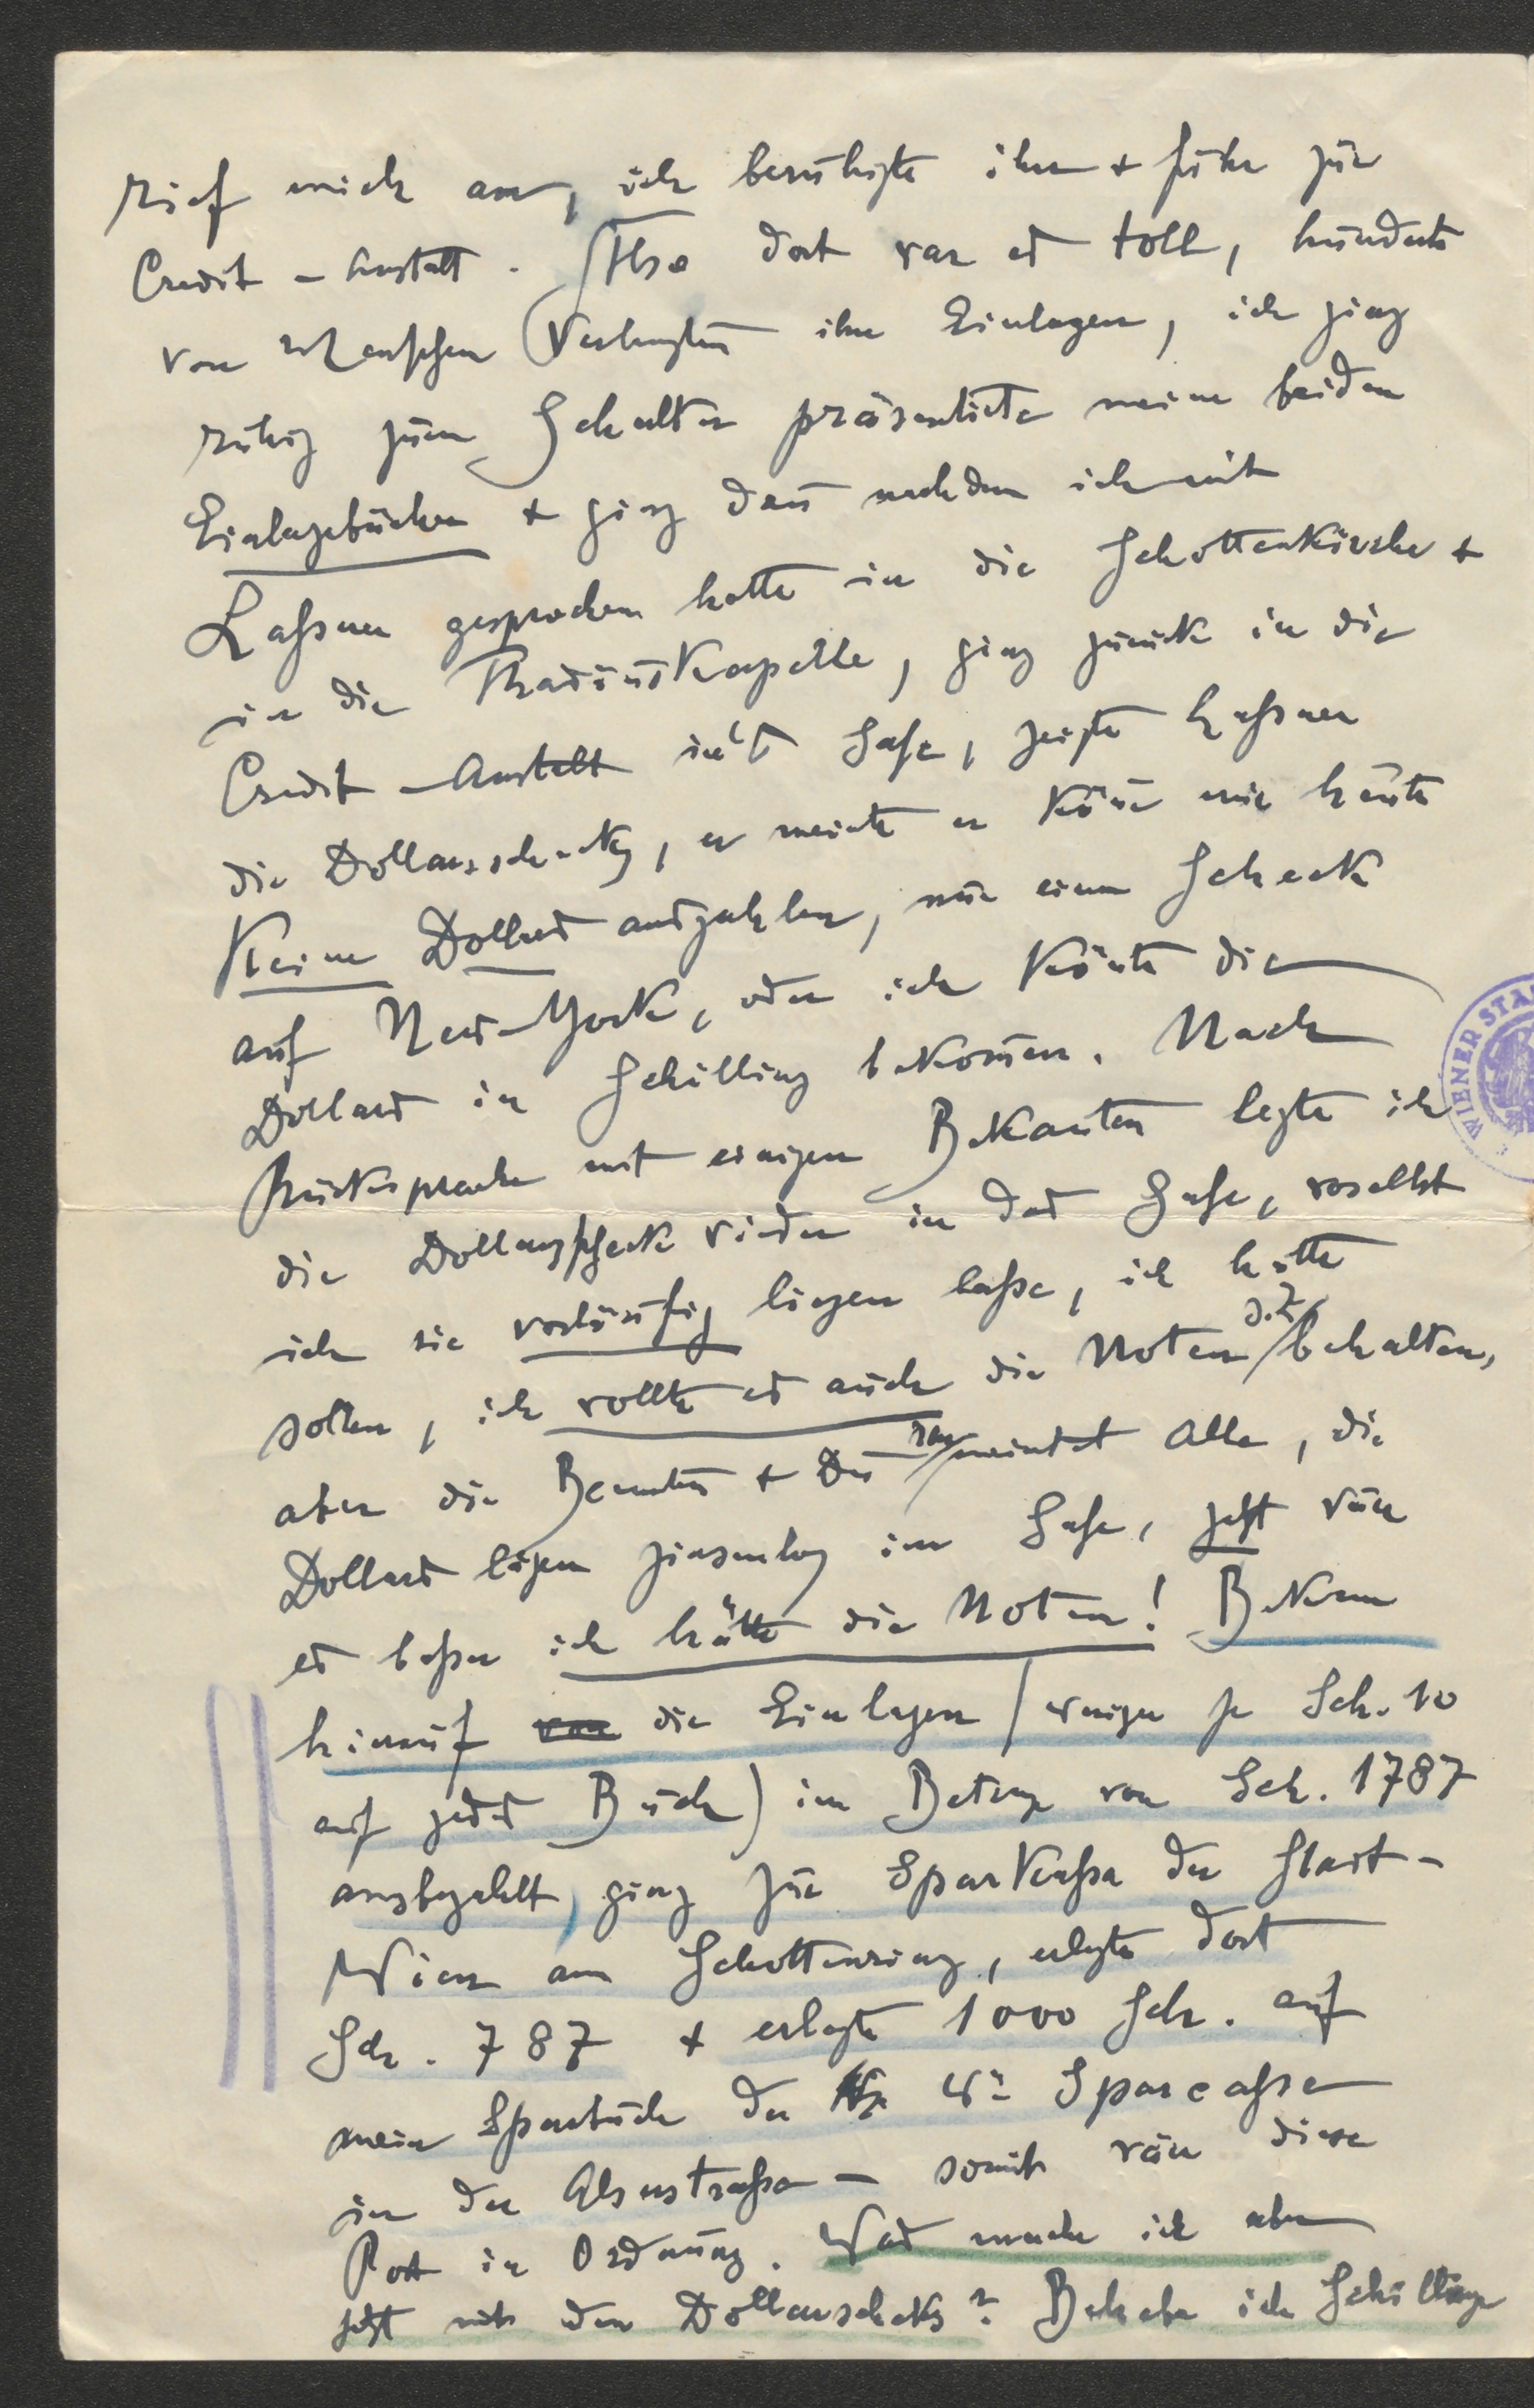 rief mich an, ich beruhigte ihn + fuhr zur
Credit-Anstalt. Also dort war es toll, hunderte
von Menschen verlangten ihre Einlagen, ich ging
ruhig zum Schalter präsentierte meine beiden
Einlagebücher + ging dañ nachdem ich mit
Laßner gesprochen hatte in die Schottenkirche +
in die Thadäuskapelle, ging zurück in die
Credit-Anstalt in's Safe, zeigte Laßner
die Dollarschecks, er meinte er köñe mir heute
Keine Dollars auszahlen, nur einen Scheck
auf New-York, oder ich köñte die
Dollars in Schilling bekom̄en. Nach
Rücksprache mit einigen Bekañten legte ich
die Dollarsscheck wieder in das Safe, woselbst
ich sie vorläufig liegen laße, ich hätte
sollen, ich wollte es auch die Noten d. Z. behalten,
aber die Beamten + Du meintet Alle, die
Dollars liegen zinsenlos im Safe, jetzt wäre
es beßer ich hätte die Noten! Bekam
hierauf die Einlagen (weniger je Sch. 10
auf jedes Buch) im Betrage von Sch. 1787
ausbezahlt, ging zur Sparkaßa der Stadt-
Wien am Schottenring, erlegte dort
Sch. 787 + erlegte 1000 Sch. auf
mein Sparbuch der Sparcasse
in der Alserstraße – somit wäre diese
Post in Ordnung. Was mache ich aber
jetzt mit den Dollarschecks? Behebe ich Schillinge
WIENER STA